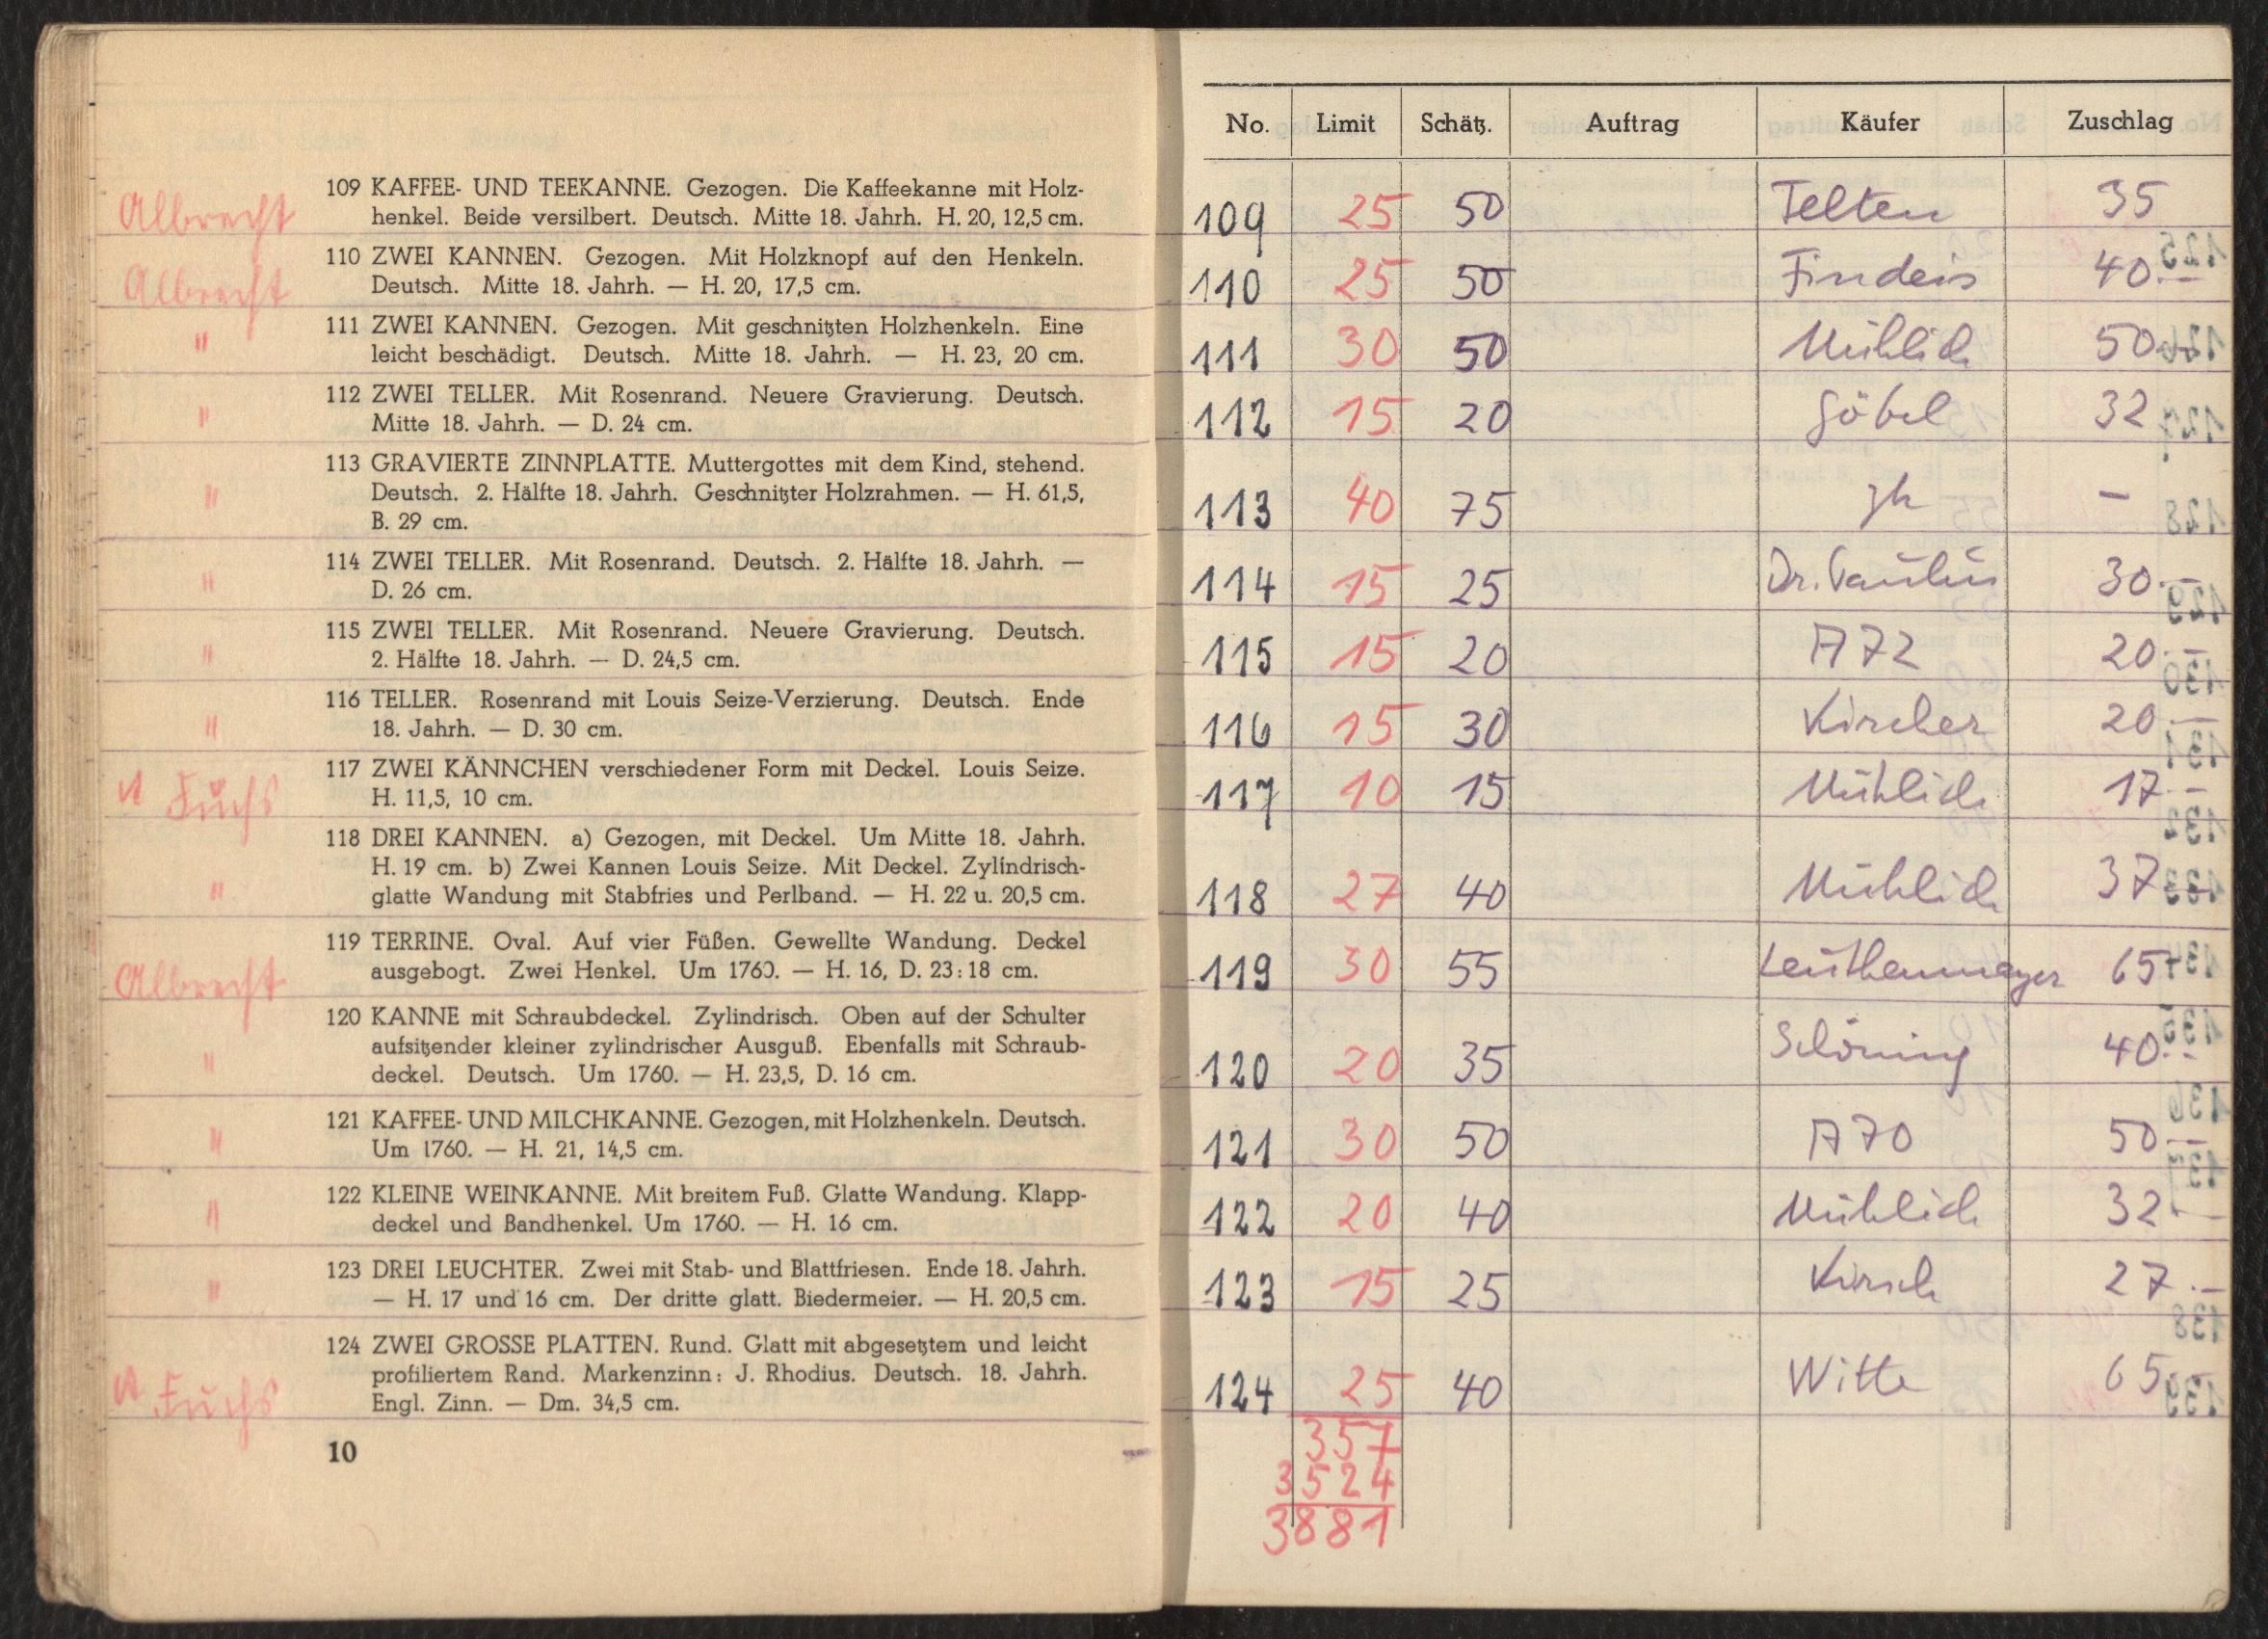 Albrecht
109 KAFFEE- UND TEEKANNE. Gezogen. Die Kaffeekanne mit Holz-
henkel. Beide versilbert. Deutsch. Mitte 18. Jahrh. H. 20, 12,5 cm.
Albrecht
110 ZWEI KANNEN. Gezogen. Mit Holzknopf auf den Henkeln.
Deutsch. Mitte 18. Jahrh. — H. 20, 17,5 cm.
"
111 ZWEI KANNEN. Gezogen. Mit geschnitzten Holzhenkeln. Eine
leicht beschädigt. Deutsch. Mitte 18. Jahrh. — H. 23, 20 cm.
"
112 ZWEI TELLER. Mit Rosenrand. Neuere Gravierung. Deutsch.
Mitte 18. Jahrh. — D. 24 cm.
"
113 GRAVIERTE ZINNPLATTE. Muttergottes mit dem Kind, stehend.
Deutsch. 2. Hälfte 18. Jahrh. Geschnitzter Holzrahmen. — H. 61,5,
B. 29 cm.
"
114 ZWEI TELLER. Mit Rosenrand. Deutsch. 2. Hälfte 18. Jahrh. —
D. 26 cm.
"
115 ZWEI TELLER. Mit Rosenrand. Neuere Gravierung. Deutsch.
2. Hälfte 18. Jahrh. — D. 24,5 cm.
"
116 TELLER. Rosenrand mit Louis Seize-Verzierung. Deutsch. Ende
18. Jahrh. — D. 30 cm.
"
Fuchs
117 ZWEI KÄNNCHEN verschiedener Form mit Deckel. Louis Seize.
H. 11,5, 10 cm.
118 DREI KANNEN. a) Gezogen, mit Deckel. Um Mitte 18. Jahrh.
H. 19 cm. b) Zwei Kannen Louis Seize. Mit Deckel. Zylindrisch-
glatte Wandung mit Stabfries und Perlband. — H. 22 u. 20,5 cm.
"
Albrecht
119 TERRINE. Oval. Auf vier Füßen. Gewellte Wandung. Deckel
ausgebogt. Zwei Henkel. Um 1760. — H. 16, D. 23:18 cm.
120 KANNE mit Schraubdeckel. Zylindrisch. Oben auf der Schulter
aufsitzender kleiner zylindrischer Ausguß. Ebenfalls mit Schraub-
deckel. Deutsch. Um 1760. — H. 23,5, D. 16 cm.
"
121 KAFFEE- UND MILCHKANNE. Gezogen, mit Holzhenkeln. Deutsch.
Um 1760. — H. 21, 14,5 cm.
"
122 KLEINE WEINKANNE. Mit breitem Fuß. Glatte Wandung. Klapp-
deckel und Bandhenkel. Um 1760. — H. 16 cm.
"
123 DREI LEUCHTER. Zwei mit Stab- und Blattfriesen. Ende 18. Jahrh.
— H. 17 und 16 cm. Der dritte glatt. Biedermeier. — H. 20,5 cm.
"
124 ZWEI GROSSE PLATTEN. Rund. Glatt mit abgesetztem und leicht
profiliertem Rand. Markenzinn: J. Rhodius. Deutsch. 18. Jahrh.
Engl. Zinn. — Dm. 34,5 cm.
Fuchs
10
No. Limit Schätz. Auftrag Käufer Zuschlag
109 25 50 Telten 35
110 25 50 Findeis 40.—
111 30 50 Mühlich 50.—
112 15 20 Göbel 32
113 40 75 zh —
114 15 25 Dr. Paulus 30.—
115 15 20 A 72 20.—
116 15 30 Kircher 20.—
117 10 15 Mühlich 17.—
118 27 40 Mühlich 37.—
119 30 55 Leuthenmayer 65.—
120 20 35 Schöning 40.—
121 30 50 A 70 50.—
122 20 40 Mühlich 32.—
123 15 25 Kirsch 27.—
124 25 40 Witte 65.—
357
3524
3881